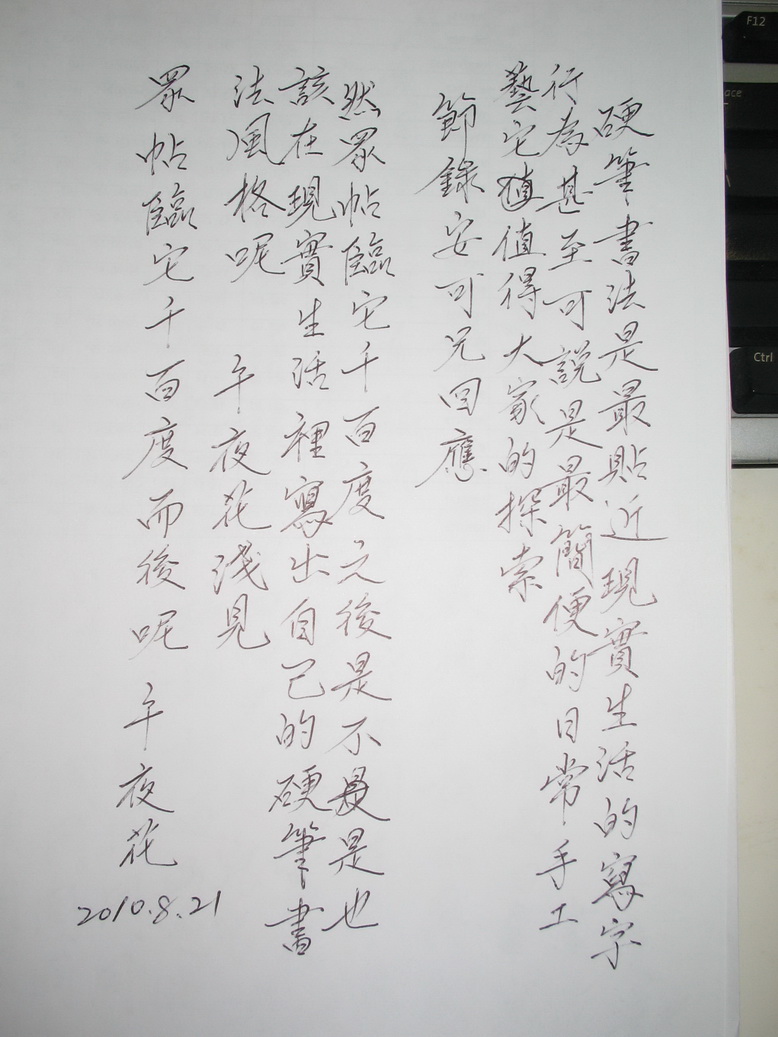 硬筆書法是最貼近現實生活的寫字
行為甚至可說是最簡便的日常手工
藝它值值得大家的探索
節錄安可兄回應
然眾帖臨它千百度之後是不最是也
該在現實生活裡寫出自己的硬筆書
法風格呢 午夜花淺見
眾帖臨它千百度而後呢 午夜花
2010.8.21
F12
Ctrl